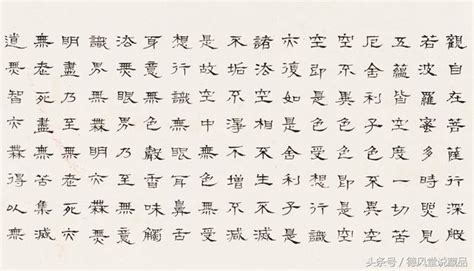 觀自在菩薩行深般
若波羅蜜多時照見
五蘊皆空度一切苦
厄舍利子色不異空
空不異色色即是空
空即是色受想行識
亦復如是舍利子是
諸法空相不生不滅
不垢不淨不增不減
是故空中無色無受
想行識無眼耳鼻舌
身意無色聲香味觸
法無眼界乃至無意
識界無無明亦無無
明盡乃至無老死亦
無老死盡無苦集滅
道無智亦無得以無
头条号／德风堂说藏品